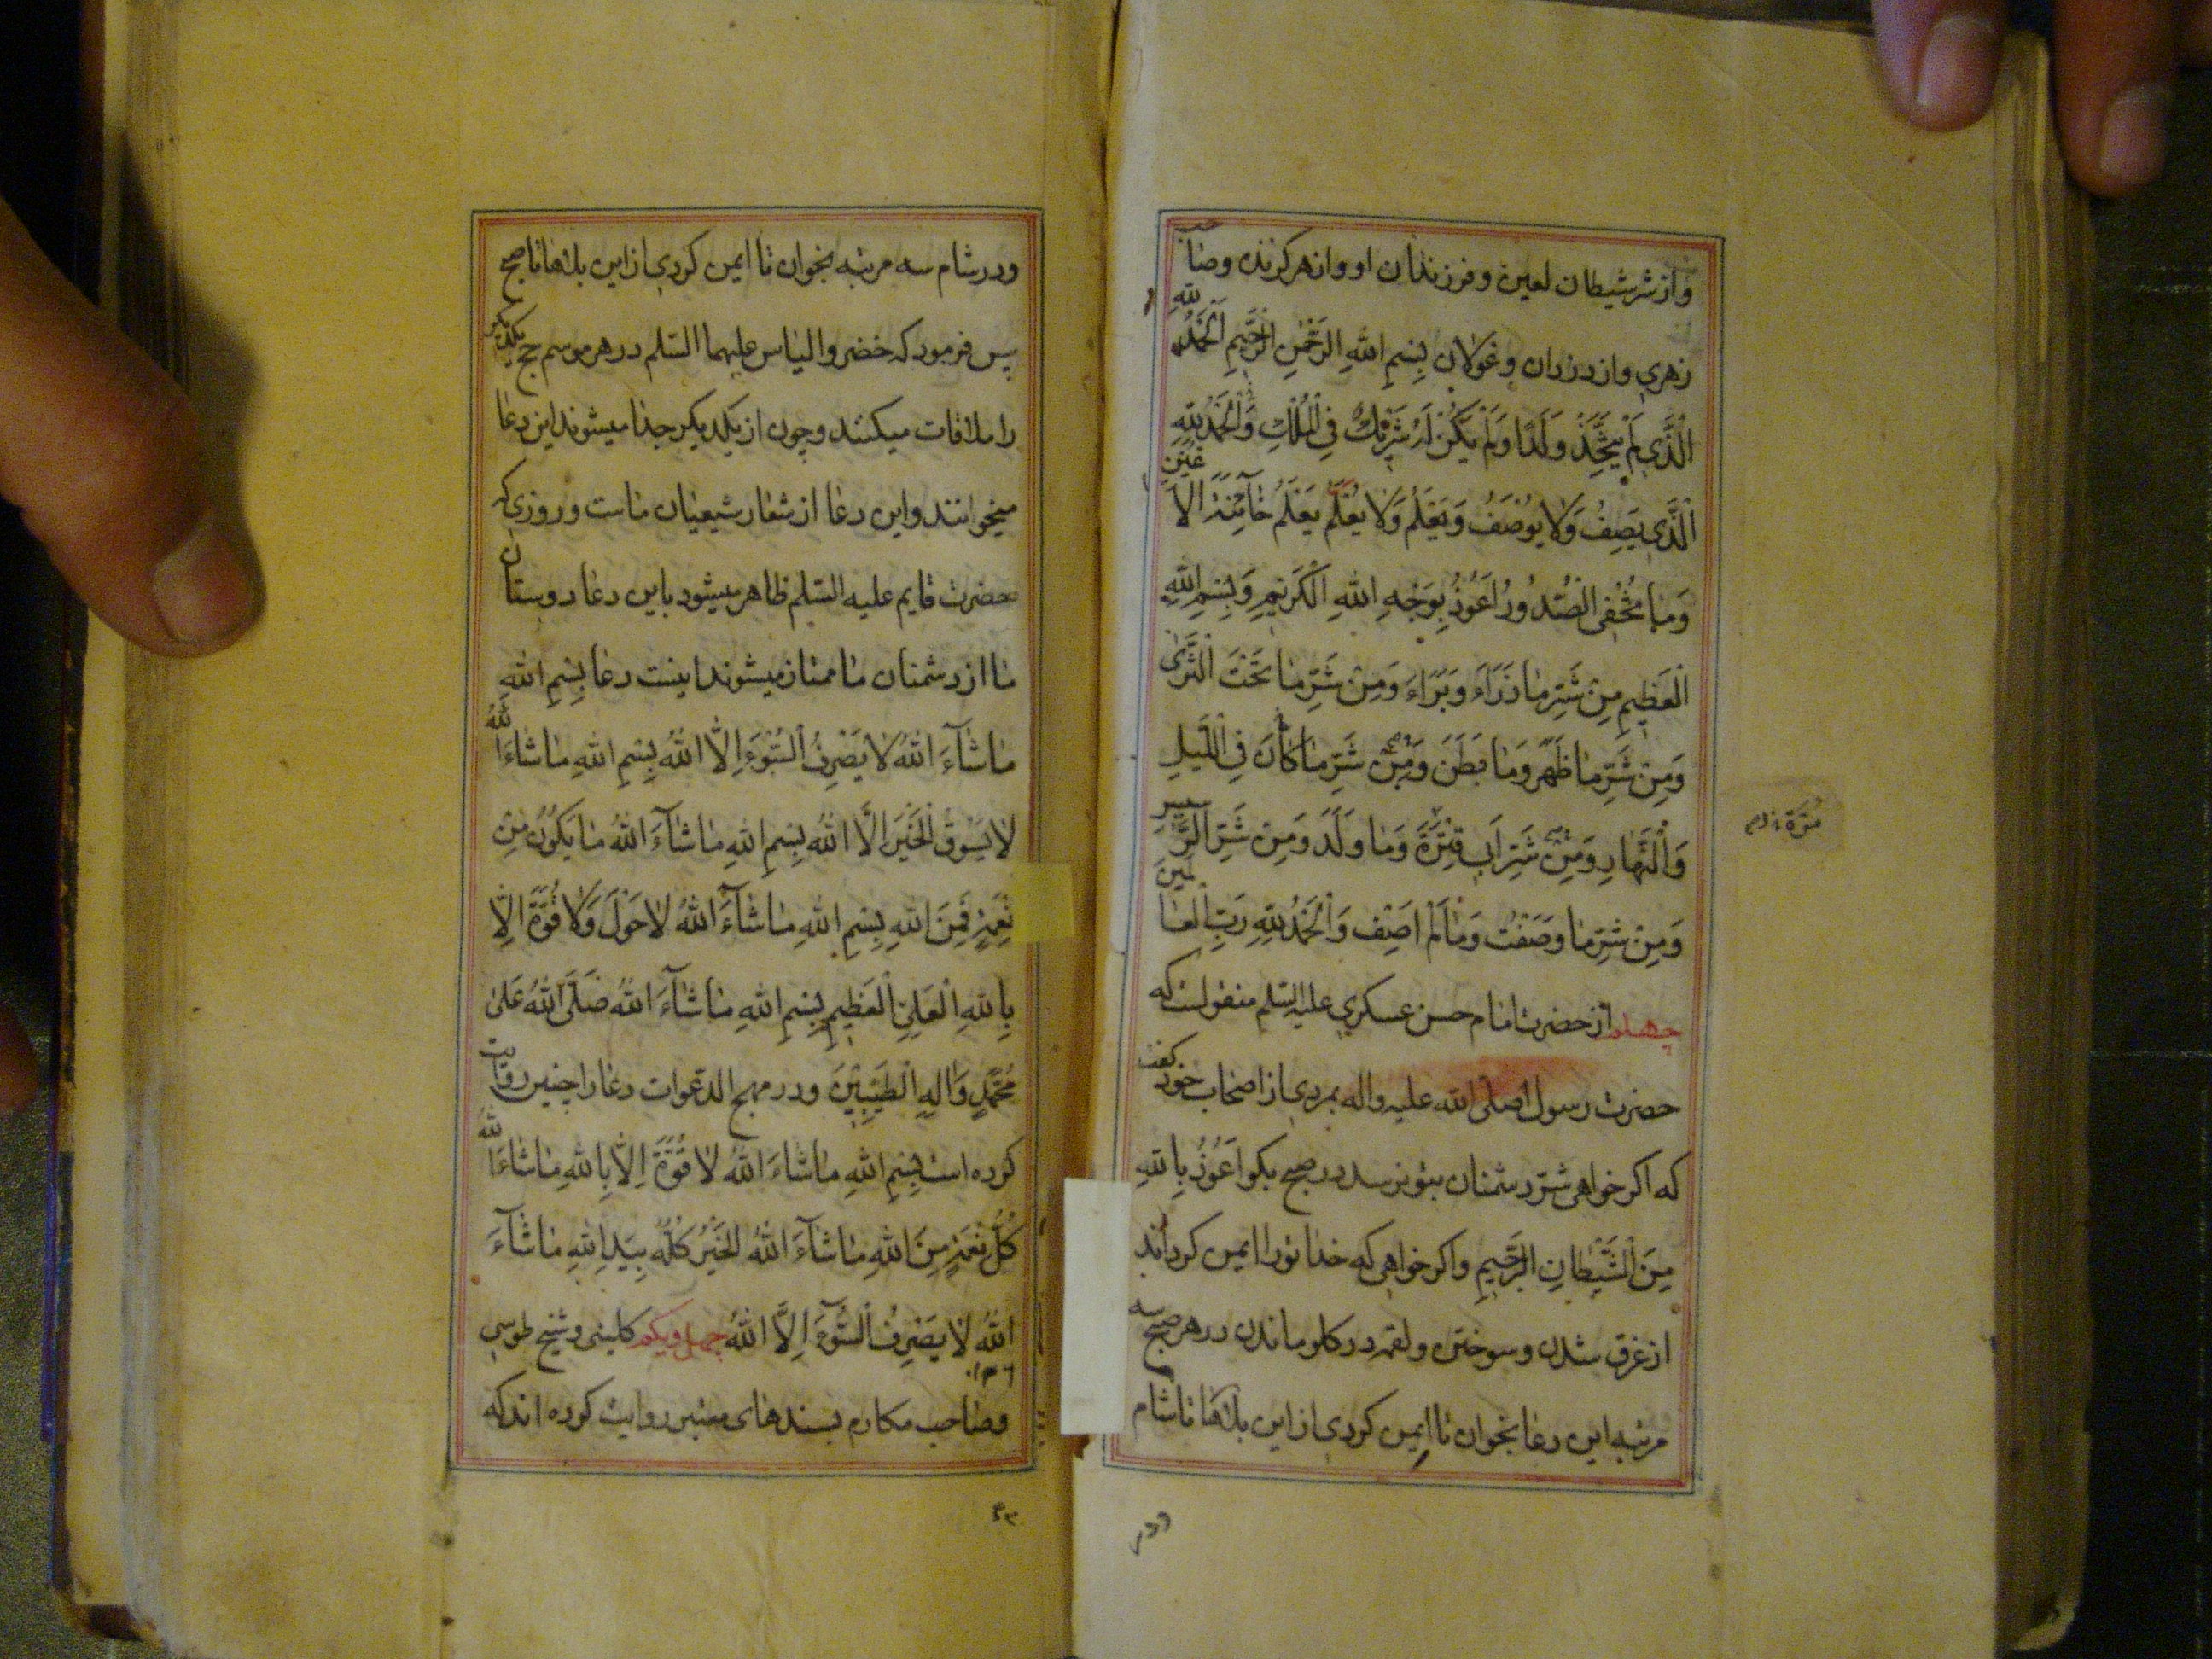 واز شر شیطان لعین و فرزندان او و از هر گزنده و صاحب
زهری و از دزدان و غولان بِسْمِ اللهِ الرَّحْمٰنِ الرَّحیمِ اَلْحَمْدُ لِلّهِ
الَّذی لَمْ یَتَّخِذْ وَلَدًا وَلَمْ یَکُنْ لَهُ شَریْكٌ فِی الْمُلْكِ وَالْحَمْدُ لِلّهِ
الَّذی یَصِفُ وَلا یُوصَفُ وَیَعْلَمُ وَلا یُعْلَمُ یَعْلَمُ خآئِنَةَ الاَعْیُنِ
وَمٰا تُخْفِی الصُّدُورُ اَعُوذُ بِوَجْهِ اللهِ الْکَریمِ وَبِسْمِ اللهِ
الْعَظیمِ مِنْ شَرِّ مٰا ذَرَاَءَ وَبَرَاَءَ وَمِنْ شَرِّ مٰا تَحْتَ الثَّرٰی
وَمِنْ شَرِّ مٰا ظَهَرَ وَمٰا بَطَنَ وَمِنْ شَرِّ مٰا کٰانَ فِی اللَّیلِ
وَالنَّهٰارِ وَمِنْ شَرِّ اَبی قِتْرَةَ وَمٰا وَلَدَ وَمِنْ شَرِّ الرَّسیسِ
مُرّة
وَمِنْ شَرِّ مٰا وَصَفْتُ وَمٰا لَمْ اَصِفْ وَالْحَمْدُ لِلّهِ رَبِّ الْعٰالَمینَ
چهلم از حضرت امام حسن عسکری علیه السلم منقولست که
حضرت رسول صلی الله علیه واله بمردی از اصحاب خود گفت
که اکر خواهی شرّ دشمنان بتو نرسد در صبح بکو اَعُوذُ بِاللهِ
مِنَ الشَّیْطٰانِ الرَّجیمِ و اکر خواهی که خدا تو را ایمن کرداند
از غرق شدن و سوختن و لقمه در کلو ماندن در هر صبح سه
مرتبه این دعا بخوان تا ایمن کردی از این بلاها تا شام
و در شام سه مرتبه بخوان تا ایمن کردی از این بلاها تا صبح
پس فرمود که خضر و الیاس علیهما السّلم در هر موسم حج یکدیکر
را ملاقات میکنند و چون از یکدیکر جدا میشوند این دعا
میخوانند و این دعا از شعار شیعیان ماست و روزی که
حضرت قایم علیه السّلم ظاهر میشود باین دعا دوستان
ما از دشمنان ما ممتاز میشوند اینست دعا بِسْمِ اللهِ
مٰا شٰآءَ اللهُ لا یَصْرِفُ السُّوءَ اِلَّا اللهُ بِسْمِ اللهِ مٰا شٰاءَ اللهُ
لا یَسُوقُ الْخَیْرَ اِلَّا اللهُ بِسْمِ اللهِ مٰا شٰآءَ اللهُ مٰا یَکُونُ مِنْ
نِعْمَةٍ فَمِنَ اللهِ بِسْمِ اللهِ مٰا شٰآءَ اللهُ لا حَوْلَ وَلا قُوَّةَ اِلّا
بِاللهِ الْعَلِیِّ الْعَظیمِ بِسْمِ اللهِ مٰا شٰآءَ اللهُ صَلَّی اللهُ عَلیٰ
مُحَمَّدٍ وَالِهِ الطَّیِّبینَ و در مهج الدعوات دعا را چنین روایت
کرده است بِسْمِ اللهِ مٰا شٰاءَ اللهُ لا قُوَّةَ اِلّا بِاللهِ مٰا شٰاءَ اللهُ
کُلُّ نِعْمَةٍ مِنَ اللهِ مٰا شٰآءَ اللهُ الْخَیْرُ کُلُّهُ بِیَدِ اللهِ مٰا شٰآءَ
اللهُ لا یَصْرِفُ السُّوٓءَ اِلَّا اللهُ چهل و یکم کلینی و شیخ طوسی
و صاحب مکارم بسندهای معتبر روایت کرده اند که